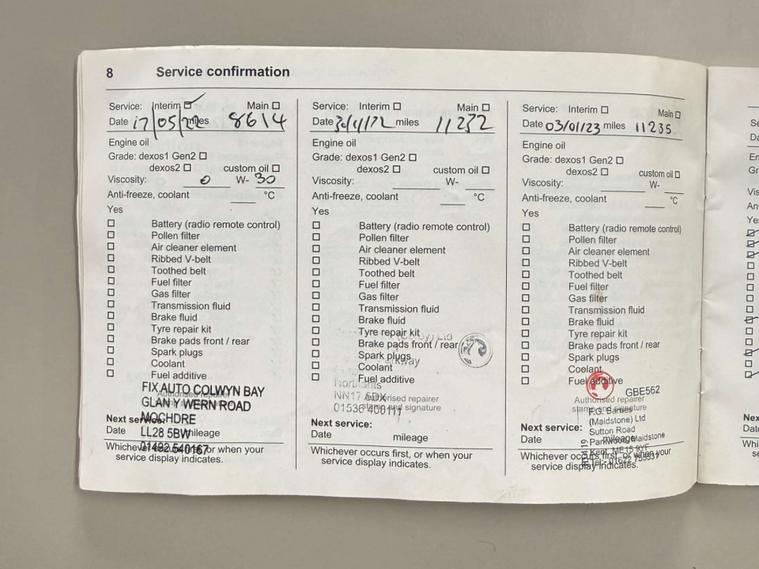 8 Service confirmation
Service: Interim Main
Date 17/05/22 miles 8614
Engine oil
Grade: dexos1 Gen2
dexos2 custom oil
Viscosity: 0 W- 30
Anti-freeze, coolant °C
Yes
Battery (radio remote control)
Pollen filter
Air cleaner element
Ribbed V-belt
Toothed belt
Fuel filter
Gas filter
Transmission fluid
Brake fluid
Tyre repair kit
Brake pads front / rear
Spark plugs
Coolant
Fuel additive
FIX AUTO COLWYN BAY
Authorised repairer
GLAN Y WERN ROAD
MOCHDRE
Next service:
LL28 5BW
Date mileage
01492 540167
Whichever occurs first, or when your
service display indicates.
Service: Interim Main
Date miles 11232
Engine oil
Grade: dexos1 Gen2
dexos2 custom oil
Viscosity: W-
Anti-freeze, coolant °C
Yes
Battery (radio remote control)
Pollen filter
Air cleaner element
Ribbed V-belt
Toothed belt
Fuel filter
Gas filter
Transmission fluid
Brake fluid
Tyre repair kit
Brake pads front / rear
Spark plugs
Coolant
Fuel additive
Northants
NN17 5DX
Authorised repairer
01536
stamp and signature
Next service:
Date mileage
Whichever occurs first, or when your
service display indicates.
Service: Interim Main
Date 03/01/23 miles 11235
Engine oil
Grade: dexos1 Gen2
dexos2 custom oil
Viscosity: W-
Anti-freeze, coolant °C
Yes
Battery (radio remote control)
Pollen filter
Air cleaner element
Ribbed V-belt
Toothed belt
Fuel filter
Gas filter
Transmission fluid
Brake fluid
Tyre repair kit
Brake pads front / rear
Spark plugs
Coolant
Fuel additive
GBE562
Authorised repairer
stamp and signature
F.G. Barnes
(Maidstone) Ltd
Next service:
Sutton Road
Date mileage
Parkwood, Maidstone
Kent, ME15 9YF
Whichever occurs first, or when your
service display indicates.